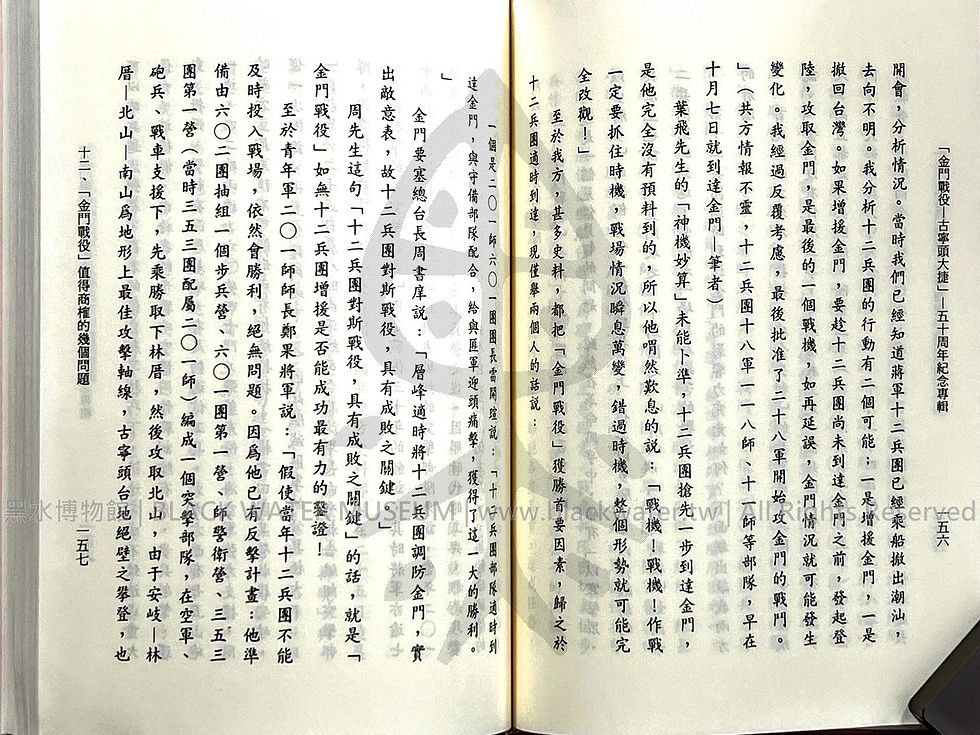 「金門戰役—古寧頭大捷」—五十周年紀念專輯
一五六
開會，分析情況。當時我們已經知道蔣軍十二兵團已經乘船撤出潮汕，
去向不明。我分析十二兵團的行動有二個可能；一是增援金門，一是
撤回台灣。如果增援金門，要趁十二兵團尚未到達金門之前，發起登
陸，攻取金門，是最後的一個戰機，如再延誤，金門情況就可能發生
變化。我經過反覆考慮，最後批准了二十八軍開始攻金門的戰鬥。
」（共方情報不靈，十二兵團十八軍一一八師、十一師等部隊，早在
十月七日就到達金門—筆者）
葉飛先生的「神機妙算」未能卜準，十二兵團搶先一步到達金門，
是他完全沒有預料到的，所以他喟然歎息的說：「戰機！戰機！作戰
一定要抓住時機，戰場情況瞬息萬變，錯過時機，整個形勢就可能完
全改觀！」
至於我方，甚多史料，都把「金門戰役」獲勝首要因素，歸之於
十二兵團適時到達，現僅舉兩個人的話說：
一個是二〇一師六〇一團團長雷開瑄說：「十二兵團部隊適時到
達金門，與守備部隊配合，給與匪軍迎頭痛擊，獲得了這一大的勝利。
」
金門要塞總台長周書庠說：「層峰適時將十二兵團調防金門，實
出敵意表，故十二兵團對斯戰役，具有成敗之關鍵。」
周先生這句「十二兵團對斯戰役，具有成敗之關鍵」的話，就是「
金門戰役」如無十二兵團增援是否能成功最有力的鑒證！
至於青年軍二〇一師師長鄭果將軍說：「假使當年十二兵團不能
及時投入戰場，依然會勝利，絕無問題。因爲他已有反擊計畫：他準
備由六〇二團抽組一個步兵營、六〇一團第一營、師警衛營、三五三
團第一營（當時三五三團配屬二〇一師）編成一個突擊部隊，在空軍、
砲兵、戰車支援下，先乘勝取下林厝，然後攻取北山，由于安岐—林
厝—北山—南山爲地形上最佳攻擊軸線，古寧頭台地絕壁之攀登，也
十二、「金門戰役」值得商榷的幾個問題
一五七
黑水博物館 | BLACK WATER MUSEUM | www.blackwater.tw | All Rights Reserved